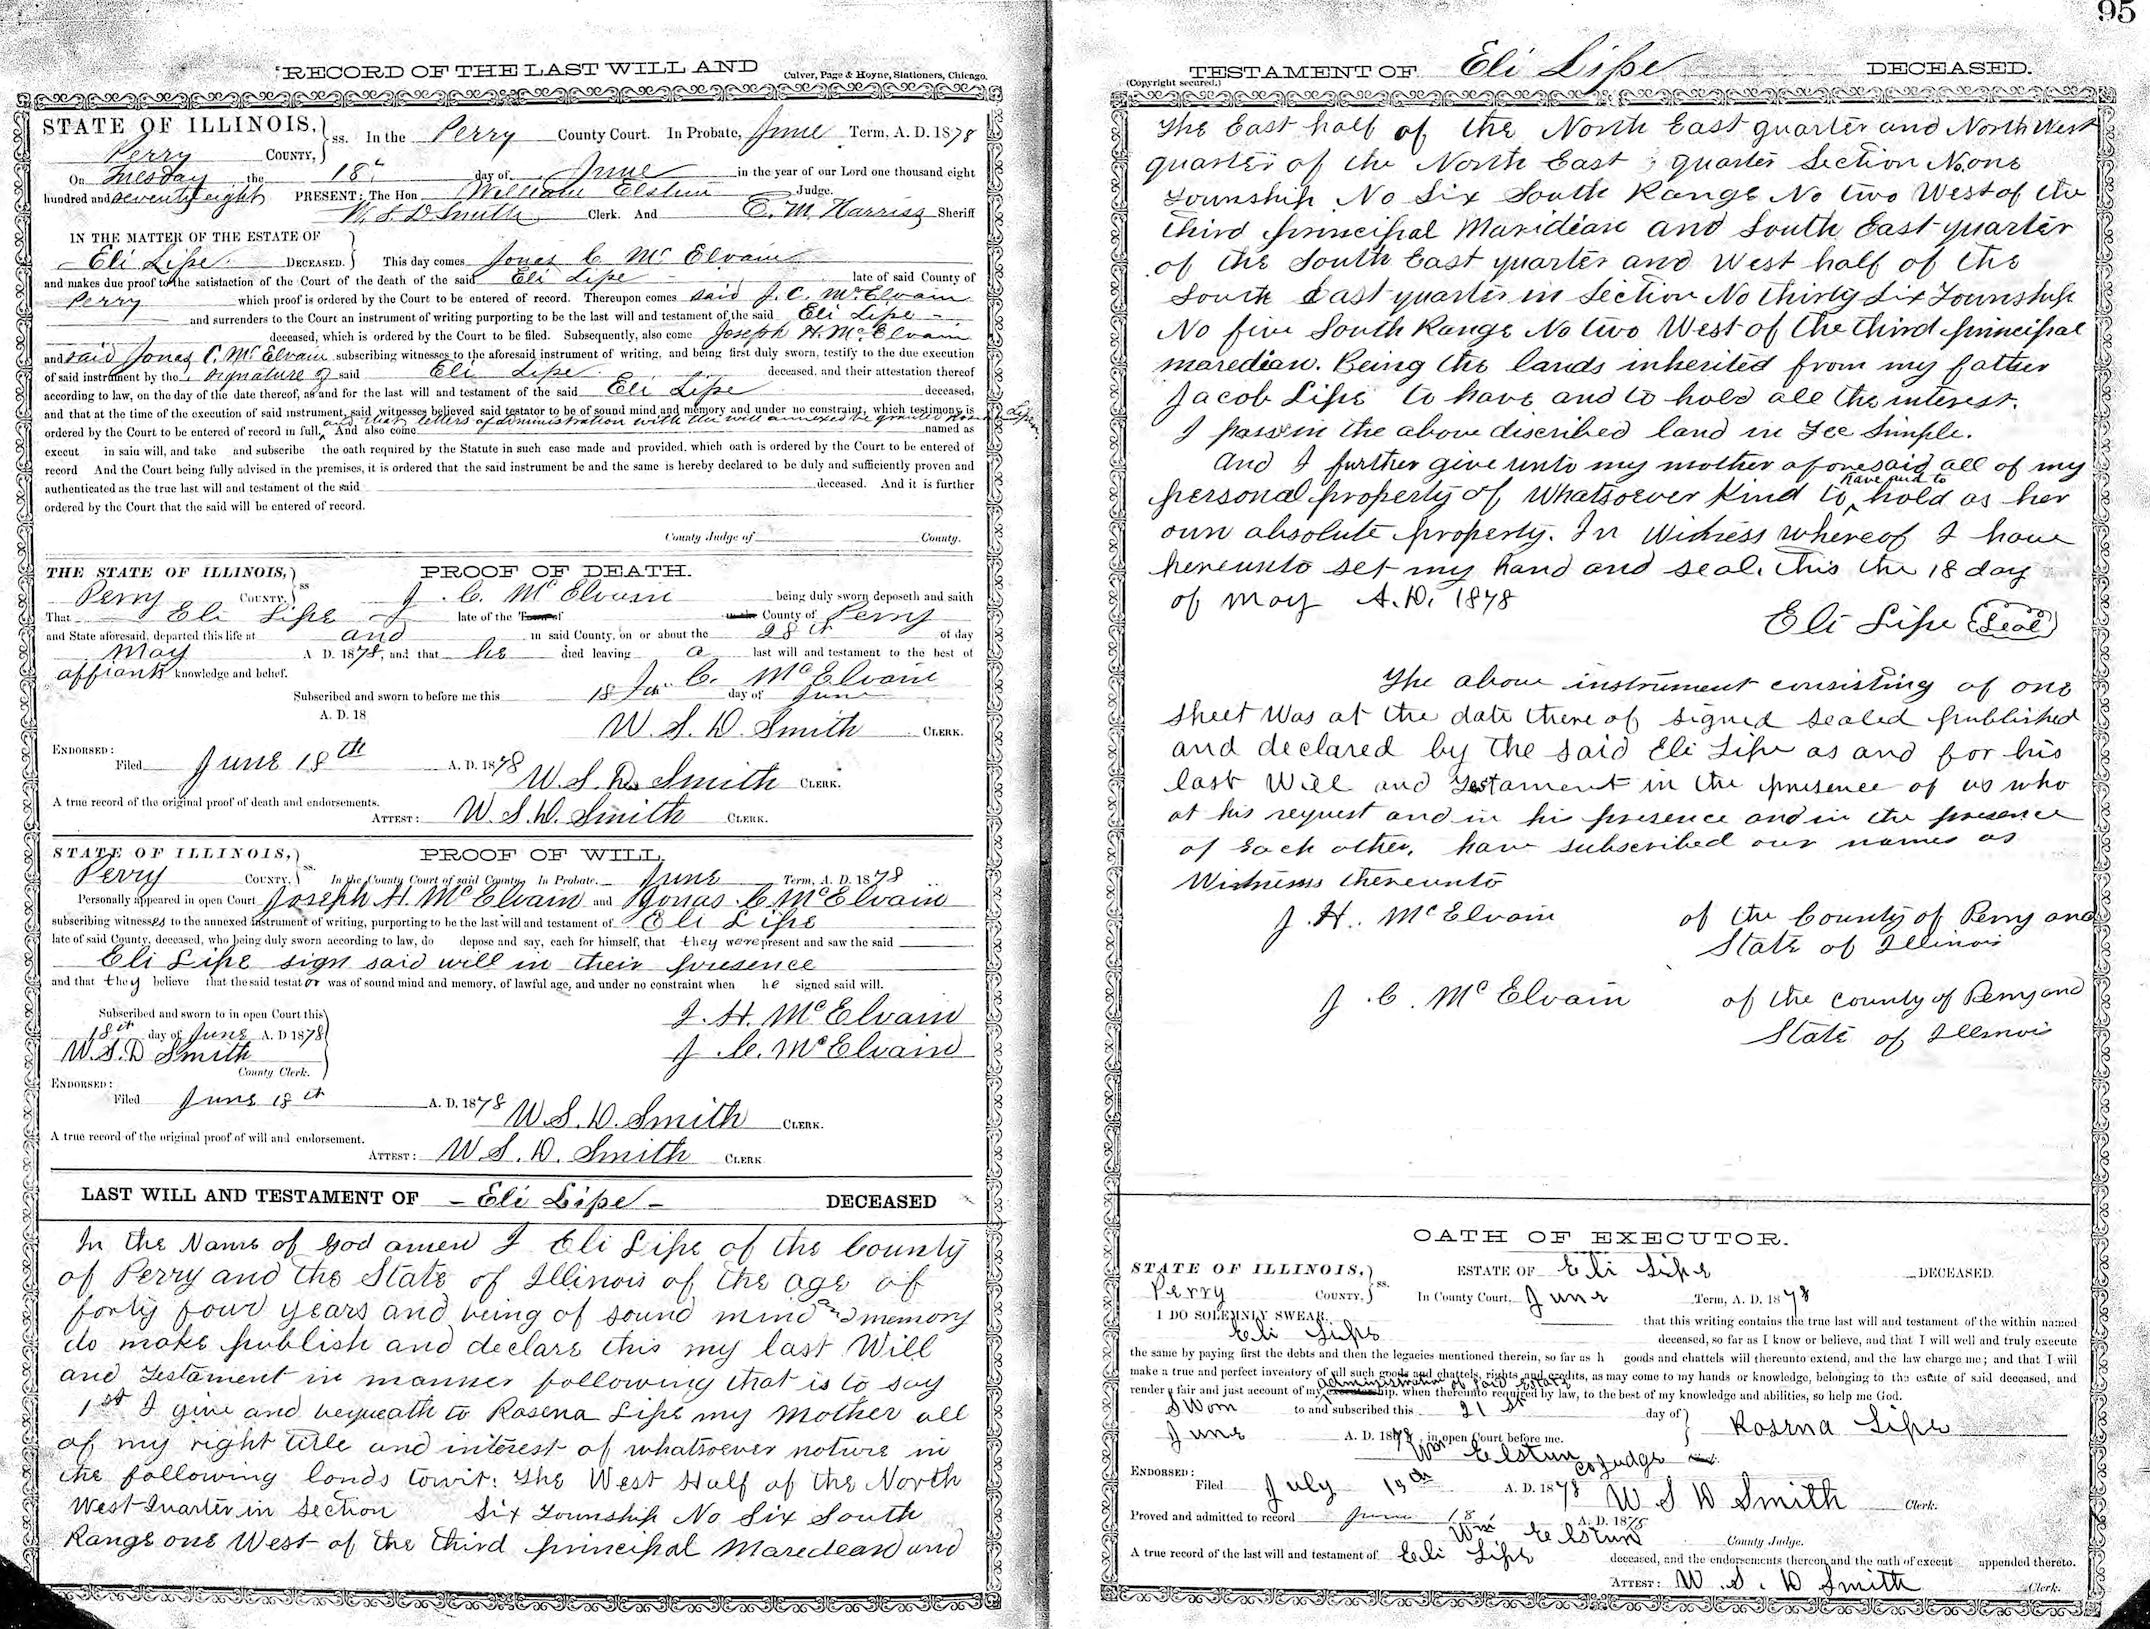 RECORD OF THE LAST WILL AND
Culver, Page & Hoyne, Stationers, Chicago.
STATE OF ILLINOIS,
Perry COUNTY, } ss. In the Perry County Court. In Probate, June Term, A. D. 1878
On Tuesday the 18th day of June in the year of our Lord one thousand eight
hundred and seventy eight PRESENT: The Hon William Elstun Judge.
W. S. D Smith Clerk. And E. M. Harriss Sheriff
IN THE MATTER OF THE ESTATE OF
Eli Lipe DECEASED. } This day comes Jonas C Mc Elvain
and makes due proof to the satisfaction of the Court of the death of the said Eli Lipe late of said County of
Perry which proof is ordered by the Court to be entered of record. Thereupon comes said J. C. McElvain
and surrenders to the Court an instrument of writing purporting to be the last will and testament of the said Eli Lipe
deceased, which is ordered by the Court to be filed. Subsequently, also come Joseph H. McElvain
and said Jonas C. McElvain subscribing witnesses to the aforesaid instrument of writing, and being first duly sworn, testify to the due execution
of said instrument by the signature of said Eli Lipe deceased, and their attestation thereof
according to law, on the day of the date thereof, as and for the last will and testament of the said Eli Lipe deceased,
and that at the time of the execution of said instrument, said witnesses believed said testator to be of sound mind and memory and under no constraint, which testimony is
and that letters of administration with the will annexed be granted Rosena Lipe
ordered by the Court to be entered of record in full, And also come named as
execut in said will, and take and subscribe the oath required by the Statute in such case made and provided, which oath is ordered by the Court to be entered of
record And the Court being fully advised in the premises, it is ordered that the said instrument be and the same is hereby declared to be duly and sufficiently proven and
authenticated as the true last will and testament of the said deceased. And it is further
ordered by the Court that the said will be entered of record.
County Judge of County.
THE STATE OF ILLINOIS, PROOF OF DEATH.
Perry COUNTY, } ss J. C. Mc Elvain being duly sworn deposeth and saith
That Eli Lipe late of the Town of County of Perry
and State aforesaid, departed this life at and in said County, on or about the 28th of day
May A D. 1878, and that he died leaving a last will and testament to the best of
affiants knowledge and belief. J. C. McElvain
Subscribed and sworn to before me this 18th day of June
A. D. 18 W. S. D. Smith CLERK.
ENDORSED:
Filed June 18th A. D. 1878 W. S. D. Smith CLERK.
A true record of the original proof of death and endorsements.
ATTEST: W. S. D. Smith CLERK.
STATE OF ILLINOIS, PROOF OF WILL,
Perry COUNTY, } ss. In the County Court of said County, In Probate. June Term, A. D. 1878
Personally appeared in open Court Joseph H. McElvain and Jonas C McElvain
subscribing witnesses to the annexed instrument of writing, purporting to be the last will and testament of Eli Lipe
late of said County, deceased, who being duly sworn according to law, do depose and say, each for himself, that they were present and saw the said
Eli Lipe sign said will in their presence
and that they believe that the said testator was of sound mind and memory, of lawful age, and under no constraint when he signed said will.
Subscribed and sworn to in open Court this J. H. McElvain
18th day of June A. D 1878 J. C. McElvain
W. S. D Smith
County Clerk.
ENDORSED:
Filed June 18th A. D. 1878 W. S. D. Smith CLERK.
A true record of the original proof of will and endorsement.
ATTEST: W. S. D. Smith CLERK
LAST WILL AND TESTAMENT OF - Eli Lipe - DECEASED
In the Name of God amen I Eli Lipe of the County
of Perry and the State of Illinois of the age of
forty four years and being of sound mind and memory
do make publish and declare this my last Will
and Testament in manner following that is to say
1st I give and bequeath to Rosena Lipe my Mother all
of my right title and interest of whatsoever nature in
the following lands towit: The West Half of the North
West Quarter in Section Six Township No Six South
Range one West of the third principal Maredean and
95
TESTAMENT OF Eli Lipe DECEASED.
(Copyright secured.)
The East half of the North East quarter and North West
quarter of the North East quarter Section No. one
Township No Six South Range No two West of the
third principal Maridian and South East quarter
of the South East quarter and West half of the
South East quarter in Section No thirty Six Township
No five South Range No two West of the third principal
maredian. Being the lands inherited from my father
Jacob Lipe to have and to hold all the interest.
I possin the above discribed land in Fee Simple.
And I further give unto my mother aforesaid all of my
personal property of whatsoever kind to have and to hold as her
own absolute property. In Witness whereof I have
hereunto set my hand and seal. this the 18 day
of May A. D. 1878
Eli Lipe (Seal)
The above instrument consisting of one
sheet was at the date there of signed sealed published
and declared by the said Eli Lipe as and for his
last Will and Testament in the presence of us who
at his request and in his presence and in the presence
of each other, have subscribed our names as
Witness thereunto
J. H. McElvain of the County of Perry and
State of Illinois
J. C. McElvain of the County of Perry and
State of Illinois
OATH OF EXECUTOR.
STATE OF ILLINOIS, ESTATE OF Eli Lipe DECEASED.
Perry COUNTY, } ss. In County Court, June Term, A. D. 1878
I DO SOLEMNLY SWEAR, that this writing contains the true last will and testament of the within named
Eli Lipe deceased, so far as I know or believe, and that I will well and truly execute
the same by paying first the debts and then the legacies mentioned therein, so far as h goods and chattels will thereunto extend, and the law charge me; and that I will
make a true and perfect inventory of all such goods and chattels, rights and credits, as may come to my hands or knowledge, belonging to the estate of said deceased, and
administration of said Estate
render a fair and just account of my executorship, when thereunto required by law, to the best of my knowledge and abilities, so help me God.
Sworn to and subscribed this 21st day of Rosena Lipe
June A. D. 1878, in open Court before me.
Wm Elstun Co Judge
ENDORSED:
Filed July 13th A. D. 1878 W S D Smith Clerk.
Proved and admitted to record June 18 A. D. 1878
Wm Elstun County Judge.
A true record of the last will and testament of Eli Lipe deceased, and the endorsements thereon, and the oath of execut appended thereto.
ATTEST: W. S. D Smith Clerk.